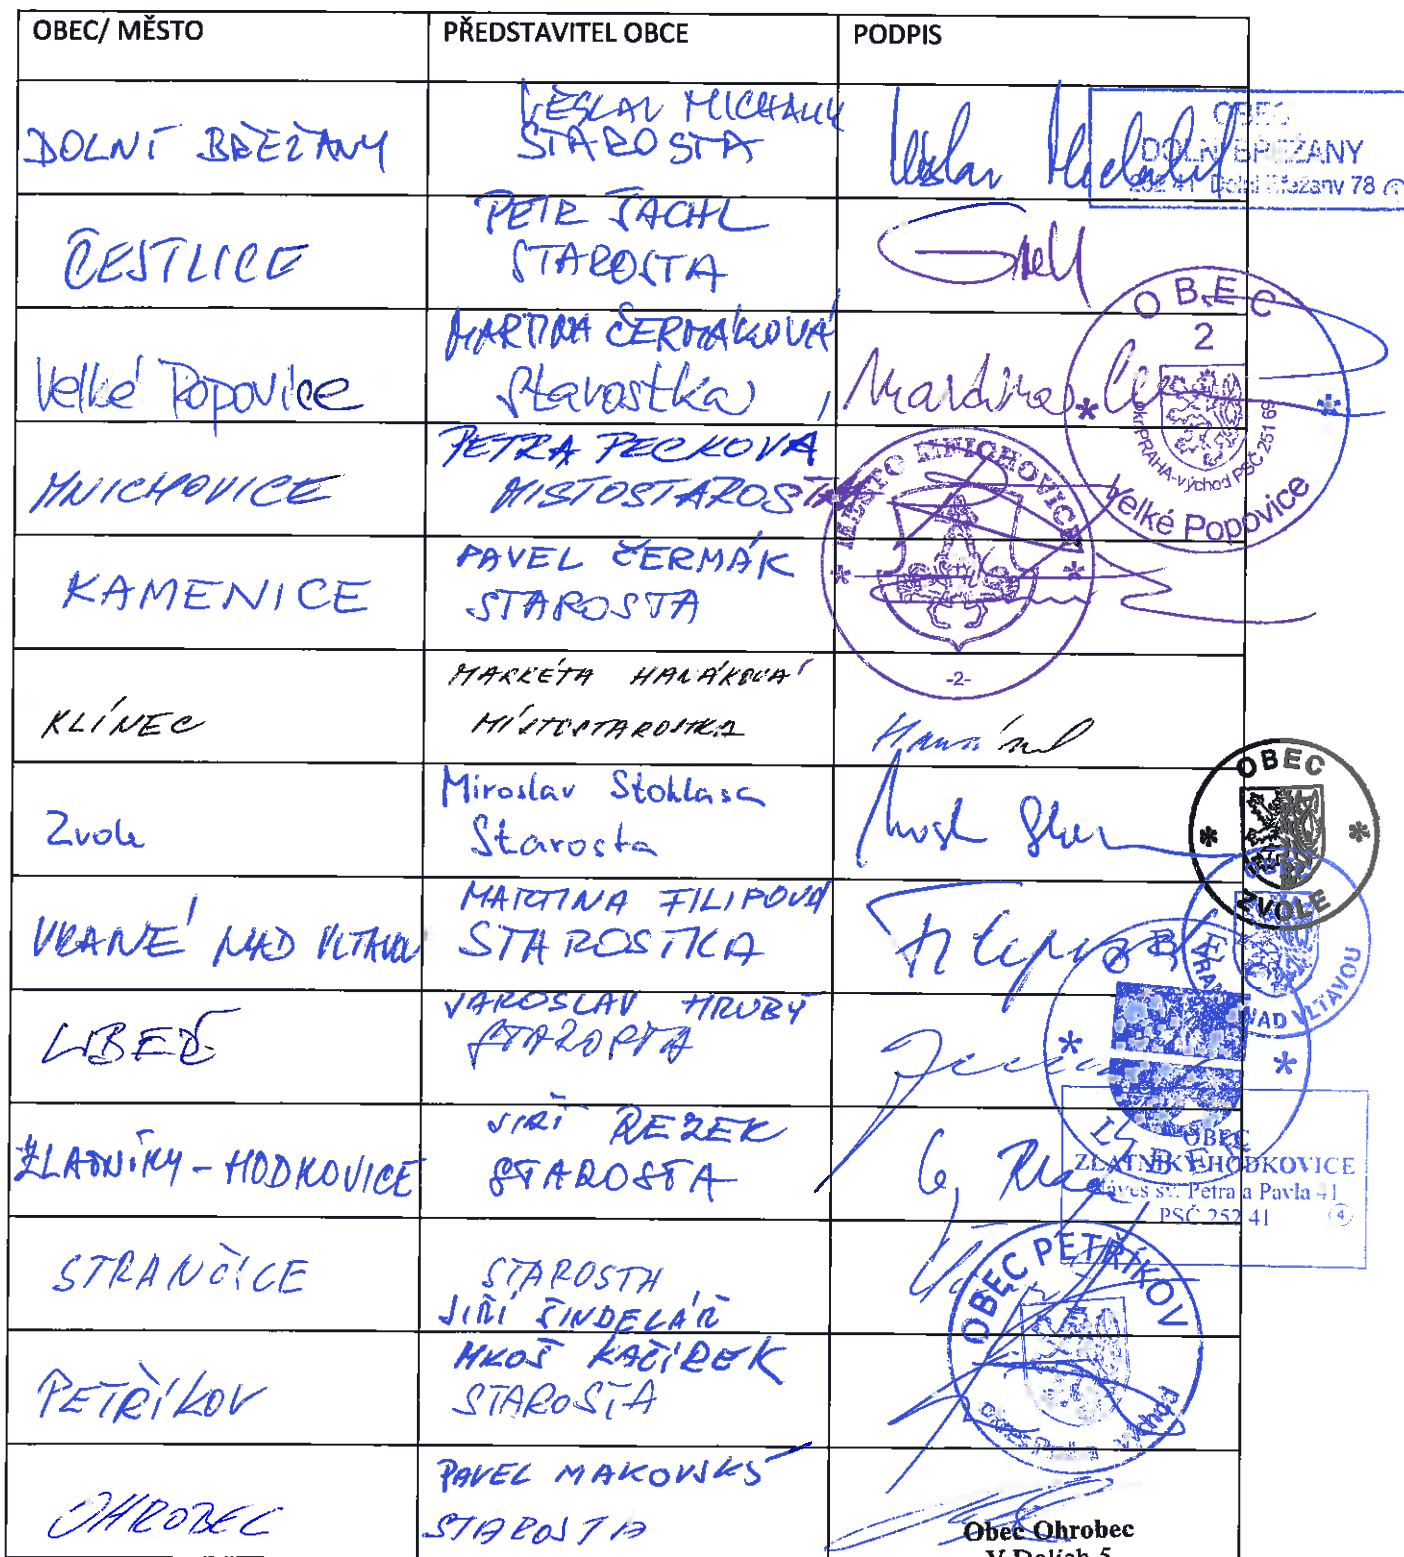 OBEC/ MĚSTO PŘEDSTAVITEL OBCE PODPIS
DOLNÍ BŘEŽANY VĚSLAV MICHALIK
STAROSTA
OBEC
DOLNÍ BŘEŽANY
252 41 Dolní Břežany 78
ČESTLICE PETR JACHL
STAROSTA
Velké Popovice MARTINA ČERMÁKOVÁ
starostka
OBEC
2
okr. PRAHA-východ PSČ 251 69
Velké Popovice
MNICHOVICE PETRA PECKOVÁ
MISTOSTAROSTA
MĚSTO MNICHOVICE
-2-
KAMENICE PAVEL ČERMÁK
STAROSTA
KLÍNEC MARKÉTA HANÁKOVÁ
MÍSTOSTAROSTKA
Zvole Miroslav Stohlasa
Starosta
OBEC
ZVOLE
VRANÉ NAD VLTAVOU MARTINA FILIPOVÁ
STAROSTKA
OBEC
VRANÉ NAD VLTAVOU
LIBEŘ JAROSLAV HRUBÝ
STAROSTA
OBEC
LIBEŘ
ZLATNÍKY-HODKOVICE JIŘÍ ŘEZEK
STAROSTA
OBEC
ZLATNÍKY-HODKOVICE
Náves sv. Petra a Pavla 41
PSČ 252 41 4
STRANČICE STAROSTA
JIŘÍ ŠINDELÁŘ
PETŘÍKOV KAČÍREK
STAROSTA
OBEC PETŘÍKOV
okres Praha - východ
OHROBEC PAVEL MAKOVSKÝ
STAROSTA
Obec Ohrobec
V Dolích 5